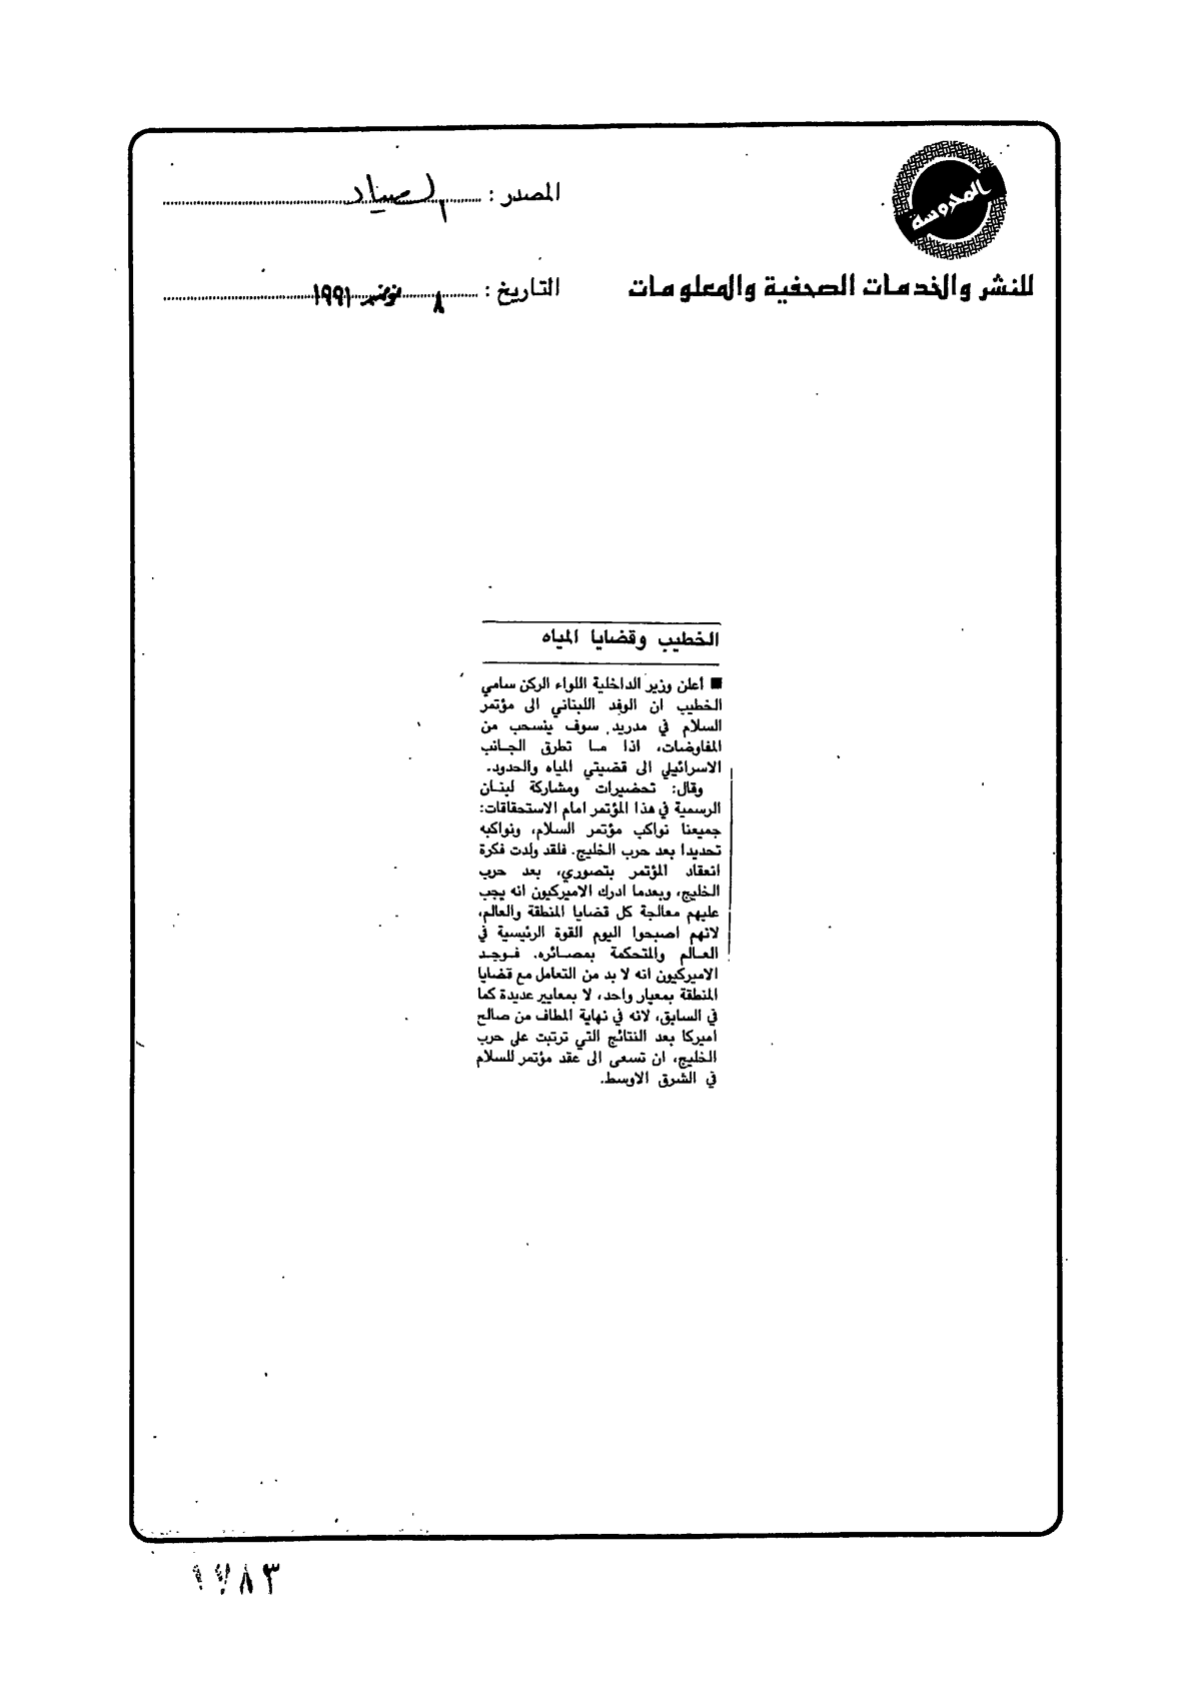 المحروسة
للنشر والخدمات الصحفية والمعلومات
المصدر : الصياد
التاريخ : ٨ نوفمبر ١٩٩١
الخطيب وقضايا المياه
■ أعلن وزير الداخلية اللواء الركن سامي
الخطيب ان الوفد اللبناني الى مؤتمر
السلام في مدريد سوف ينسحب من
المفاوضات، اذا ما تطرق الجانب
الاسرائيلي الى قضيتي المياه والحدود.
وقال: تحضيرات ومشاركة لبنان
الرسمية في هذا المؤتمر امام الاستحقاقات:
جميعنا نواكب مؤتمر السلام، ونواكبه
تحديدا بعد حرب الخليج. فلقد ولدت فكرة
انعقاد المؤتمر بتصوري، بعد حرب
الخليج، وبعدما ادرك الاميركيون انه يجب
عليهم معالجة كل قضايا المنطقة والعالم،
لانهم اصبحوا اليوم القوة الرئيسية في
العالم والمتحكمة بمصائره. فوجد
الاميركيون انه لا بد من التعامل مع قضايا
المنطقة بمعيار واحد، لا بمعايير عديدة كما
في السابق، لانه في نهاية المطاف من صالح
اميركا بعد النتائج التي ترتبت على حرب
الخليج، ان تسعى الى عقد مؤتمر للسلام
في الشرق الاوسط.
١٧٨٣